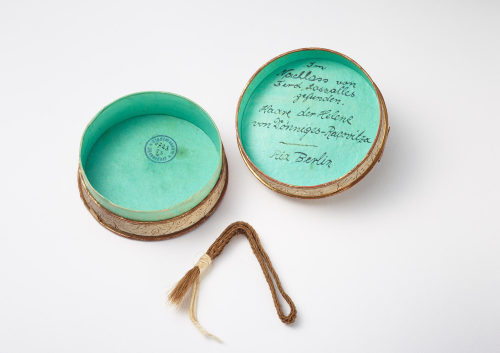 Im
Nachlass von
Ferd. Lassalles
gefunden.
Haare der Helene
von Dönniges-Racovitza
Berlin